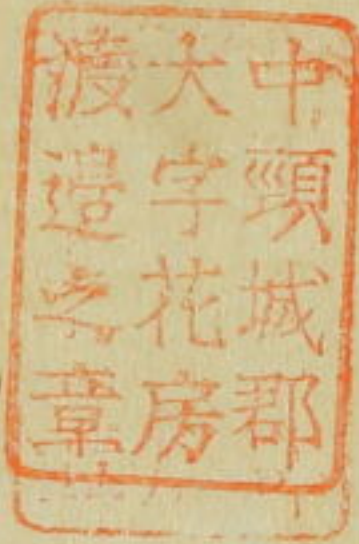 中頸城郡
大字花房
渡邉之章